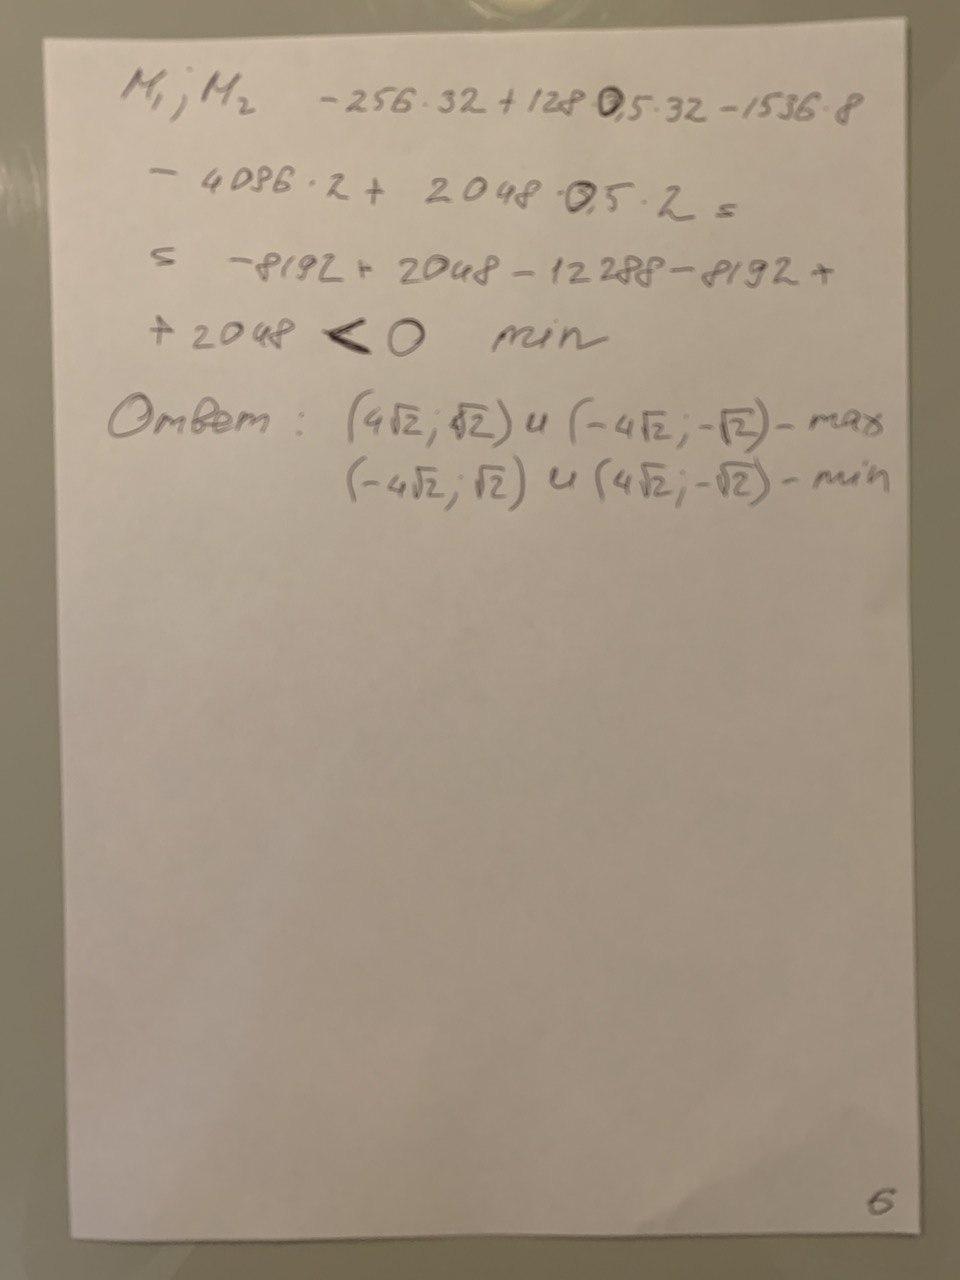 M₁; M₂ -256·32+128·0,5·32-1536·8
- 4096·2+ 2048·0,5·2 =
= -8192+ 2048-12288-8192+
+2048 < 0 min
Ответ: (4√2; √2) и (-4√2; -√2)- max
(-4√2; √2) и (4√2; -√2)- min
6